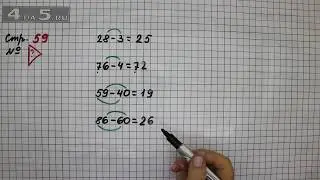 4DA5.RU
Стр. 59
№ ?
28-3=25
76-4=72
59-40=19
86-60=26